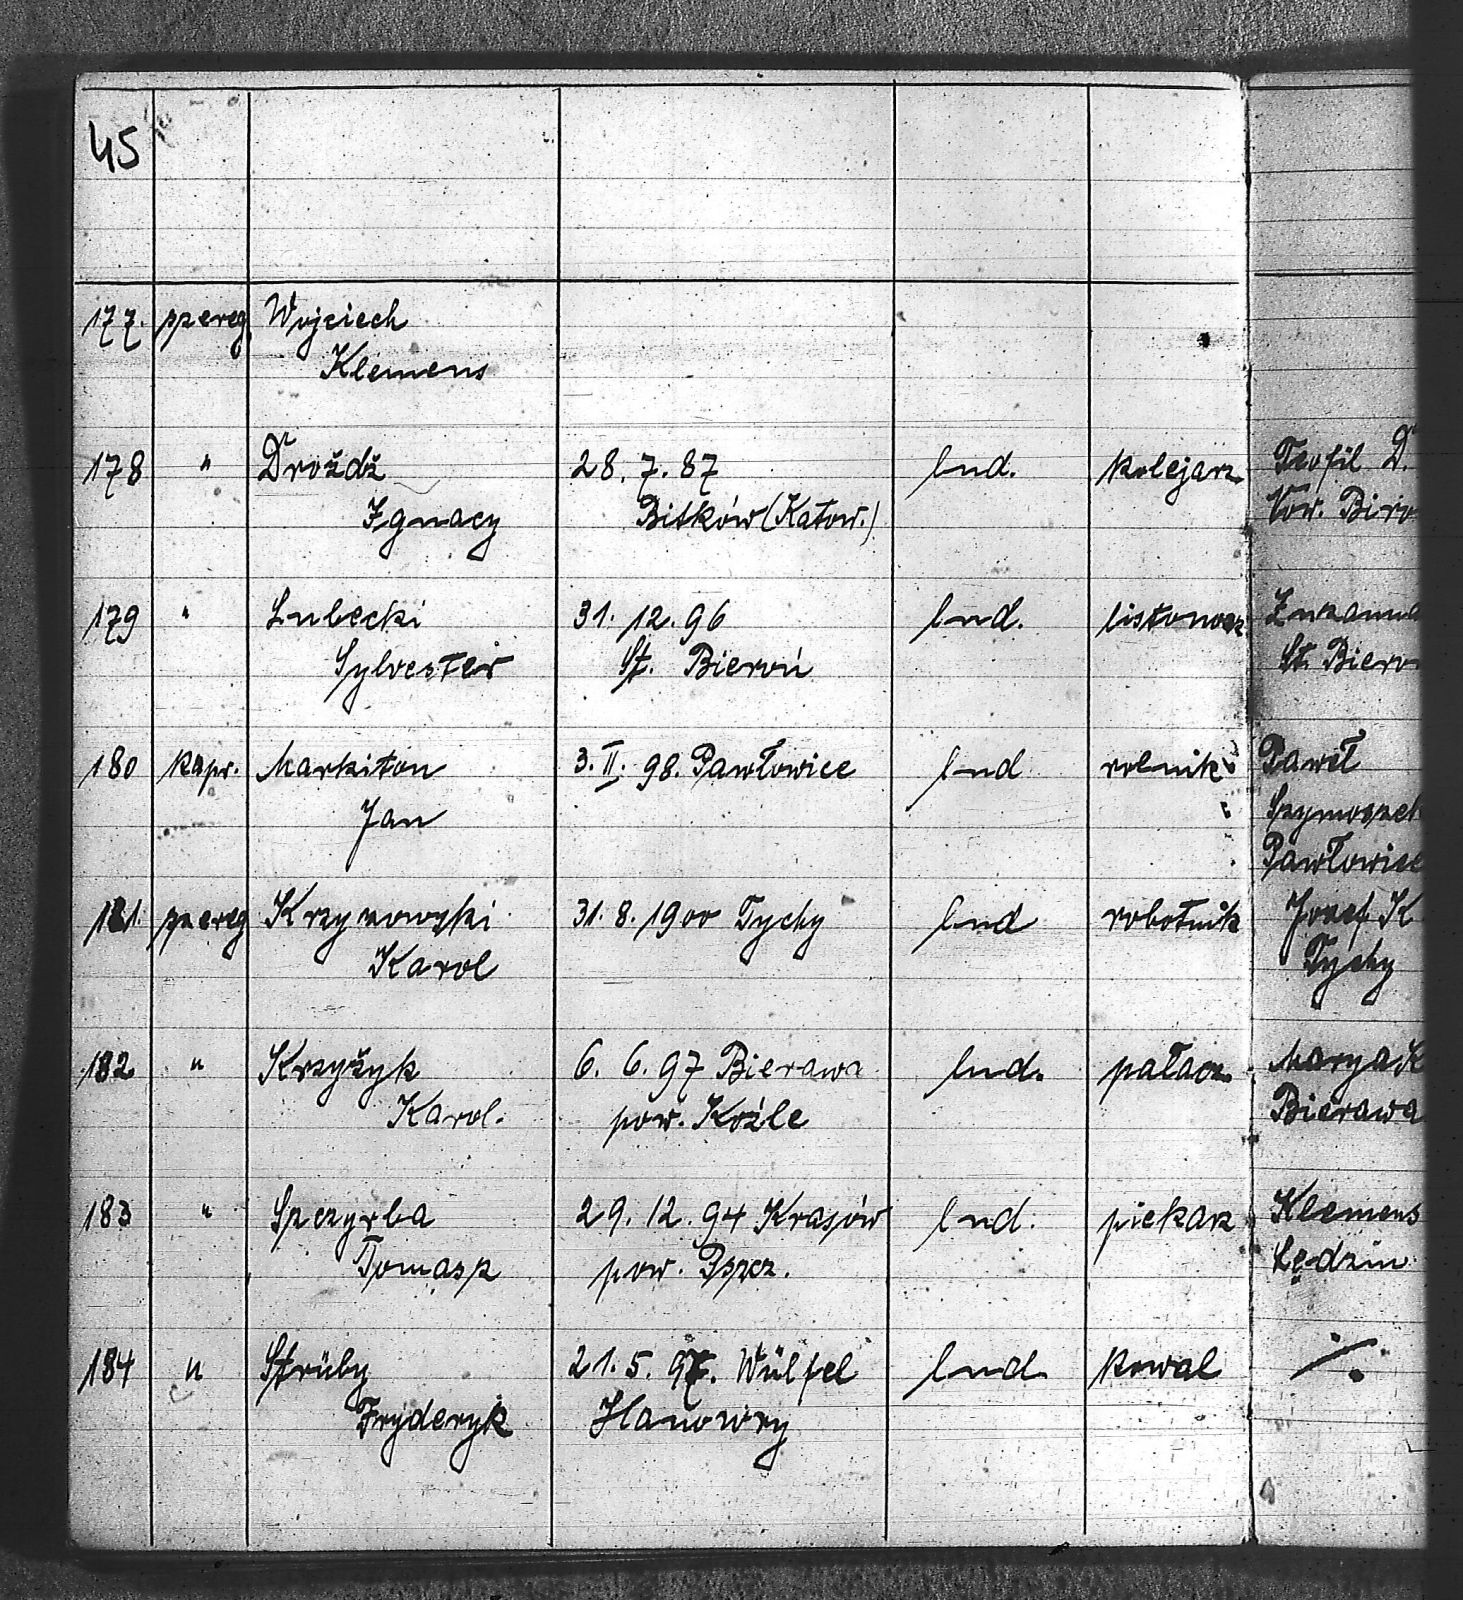 45
177. szereg Wojciech
Klemens
178 " Droždž 28.7.87 lud. kolejarz Teofil D.
Ignacy Bitków (Katow.) Now. Biro
179 " Lubecki 31.12.96 lud. listonosz Zuzanna
Sylvester St. Bieruń St. Bieru
180 kapr. Markiton 3.II.98. Pawłowice lud rolnik Paweł
Jan
Pawłowice
181. szereg Krzyżowski 31.8.1900 Tychy lud robotnik Jozef K
Karol Tychy
182 " Krzyżyk 6.6.97 Bierawa lud. pałacz. Marya K
Karol. pow. Koźle Bierawa
183 " Szczyrba 29.12.94 Krasów lud. piekarz Klemens
Tomasz pow. Pszcz. Lędzin
184 " Strüby 21.5.97. Wülfel lud. kowal ./.
Fryderyk Hanowry